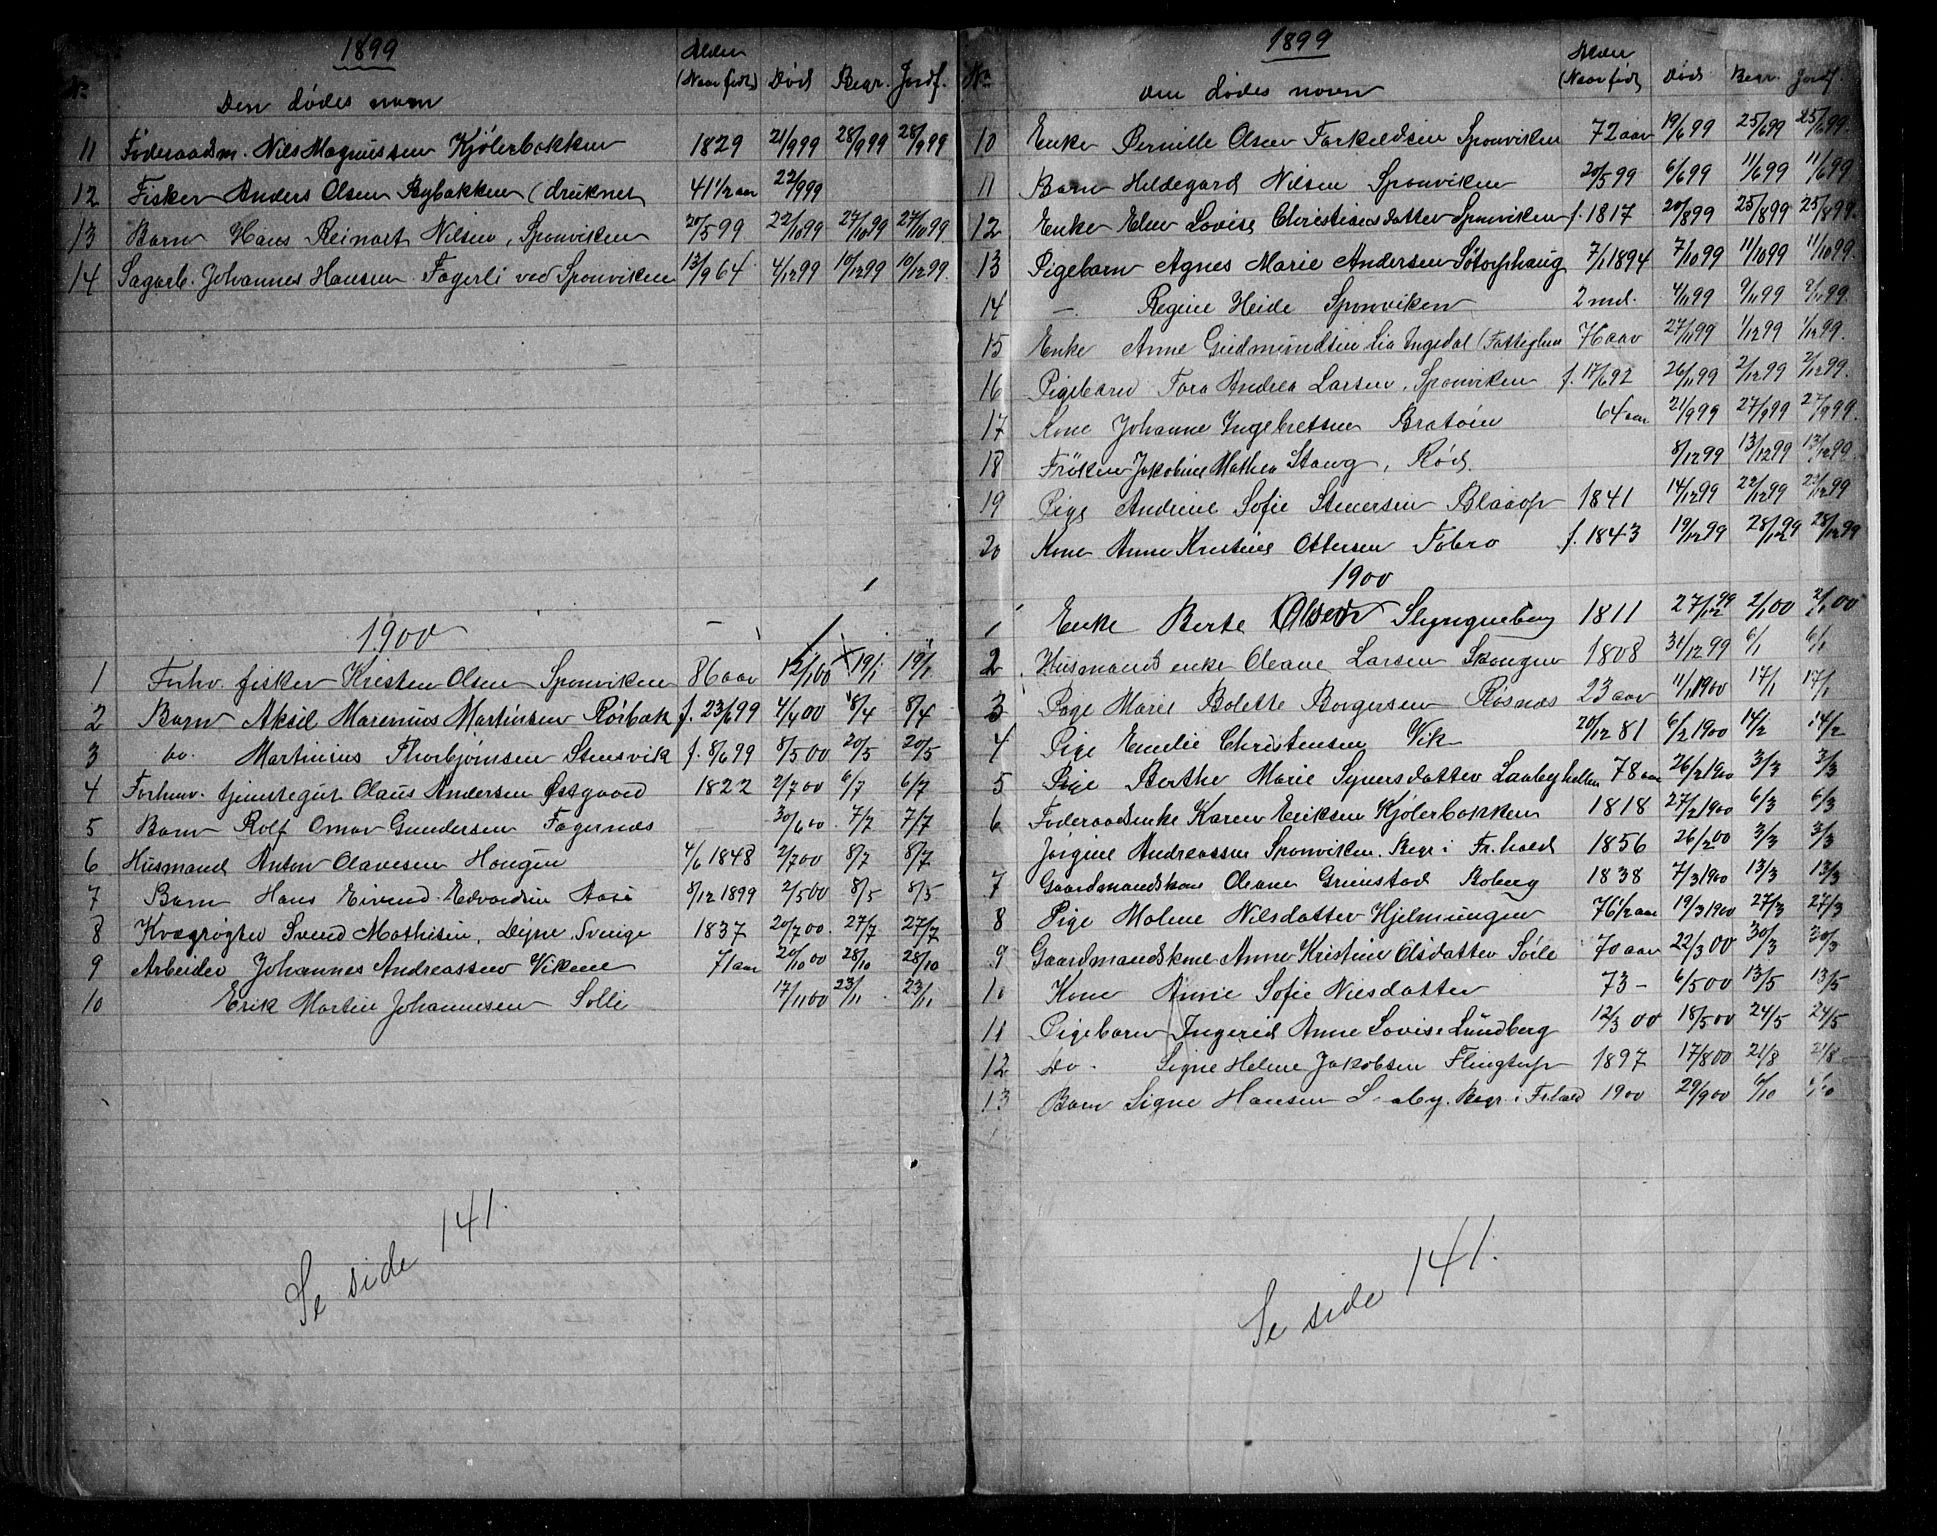 1899
No Den dødes navn Alder (Naar født) Død Begr. Jordf.
11 Føderaadsm. Nils Magnussen Kjølerbakken 1829 21/9 99 28/9 99 28/9 99
12 Fisker Anders Olsen Bybakken (druknet) 41 1/2 aar 22/9 99
13 Barn Hans Reinart Nilsen, Sponviken 20/5 99 22/10 99 27/10 99 27/10 99
14 Sagarb. Johannes Hansen Fagerli ved Sponviken 13/9 64 4/12 99 10/12 99 10/12 99
1900
1 Forhv. fisker Kristen Olsen Sponviken 86 aar 12/1 00 19/1 19/1
2 Barn Aksel Marenius Martinsen Rørbæk f. 23/6 99 4/4 00 8/4 8/4
3 do. Martinius Thorbjørnsen Stensvik f. 8/6 99 8/5 00 20/5 20/5
4 Forhenv. Olaus Andersen Østgaard 1822 2/7 00 6/7 6/7
5 Barn Rolf Omar Gundersen Fagernæs – 30/6 00 7/7 7/7
6 Husmand Anton Olavesen Hougen 4/6 1848 2/7 00 8/7 8/7
7 Barn Hans Eivind Edvardsen Aase 8/12 1899 2/5 00 8/5 8/5
8 Kvægrøgter Svend Mathisen, Dejne, Sverige 1837 20/7 00 27/7 27/7
9 Arbeider Johannes Andreassen Vikene 71 aar 20/10 00 28/10 28/10
10 Erik Martin Johannesen Solli 17/11 00 23/11 23/11
Se side 141.
1899
No Den dødes navn Alder (Naar født) Død Begr. Jordf.
10 Enke Pernille Olsen Torkeldsen Sponviken 72 aar 19/6 99 25/6 99 25/6 99
11 Barn Hildegard Nilsen Sponviken 20/5 99 6/6 99 11/6 99 11/6 99
12 Enke Elen Lovise Christiansdatter Sponviken f. 1817 20/8 99 25/8 99 25/8 99
13 Pigebarn Agnes Marie Andersen Søtorphaug 7/1 1894 7/10 99 11/10 99 11/10 99
14 – Regine Heide Sponviken 2 md. 4/11 99 9/11 99 9/11 99
15 Enke Anne Gudmundsen Lia Ingedal (Fattiglem 76 aar 27/11 99 1/12 99 1/12 99
16 Pigebarn Tora Andrea Larsen, Sponviken f. 17/6 92 26/11 99 2/12 99 2/12 99
17 Kone Johanne Ingebretsen Bratøen 64 aar 21/9 99 27/9 99 27/9 99
18 Frøken Jakobine Mathea Stang, Rød. 8/12 99 13/12 99 13/12 99
19 Pige Andrine Sofie Stenersen Blaaop 1841 14/12 99 22/12 99 22/12 99
20 Kone Anne Kristine Ottersen Tobro f. 1843 19/12 99 28/12 99 28/12 99
1900
1 Enke Berte Olsen Slyngneberg 1811 27/12 99 2/1 00 2/1 00
2 Husmandsenke Oleane Larsen Skougen 1808 31/12 99 6/1 6/1
3 Pige Marie Bolette Borgersen Røsnæs 23 aar 11/1 1900 17/1 17/1
4 Pige Emilie Christensen Vik 20/12 81 6/2 1900 14/2 14/2
5 Pige Berthe Marie Syversdatter Laabyhollen 78 aar 26/2 1900 3/3 3/3
6 Føderaadsenke Karen Eriksen Kjølerbakken 1818 27/2 1900 6/3 6/3
Jørgine Andreassen Sponviken. Begr. i Fr.hald 1856 26/2 00 3/3 3/3
7 Gaardmandskone Oleane Grimstad Boberg 1838 7/3 1900 13/3 13/3
8 Pige Malene Nilsdatter Hjelmungen 76 1/2 aar 19/3 1900 27/3 27/3
9 Gaardmandskone Anne Kristine Olsdatter Søile 70 aar 22/3 00 30/3 30/3
10 Kone Annie Sofie Nilsdatter 73 – 6/5 00 13/5 13/5
11 Pigebarn Ingerid Anne Lovise Lundberg 12/3 00 18/5 00 24/5 24/5
12 Do. Signe Helene Jakobsen Flingtorp 1897 17/8 00 21/8 21/8
13 Barn Signe Hansen Begr. i Fr.hald 1900 29/9 00 6/10 6/10
Se side 141.